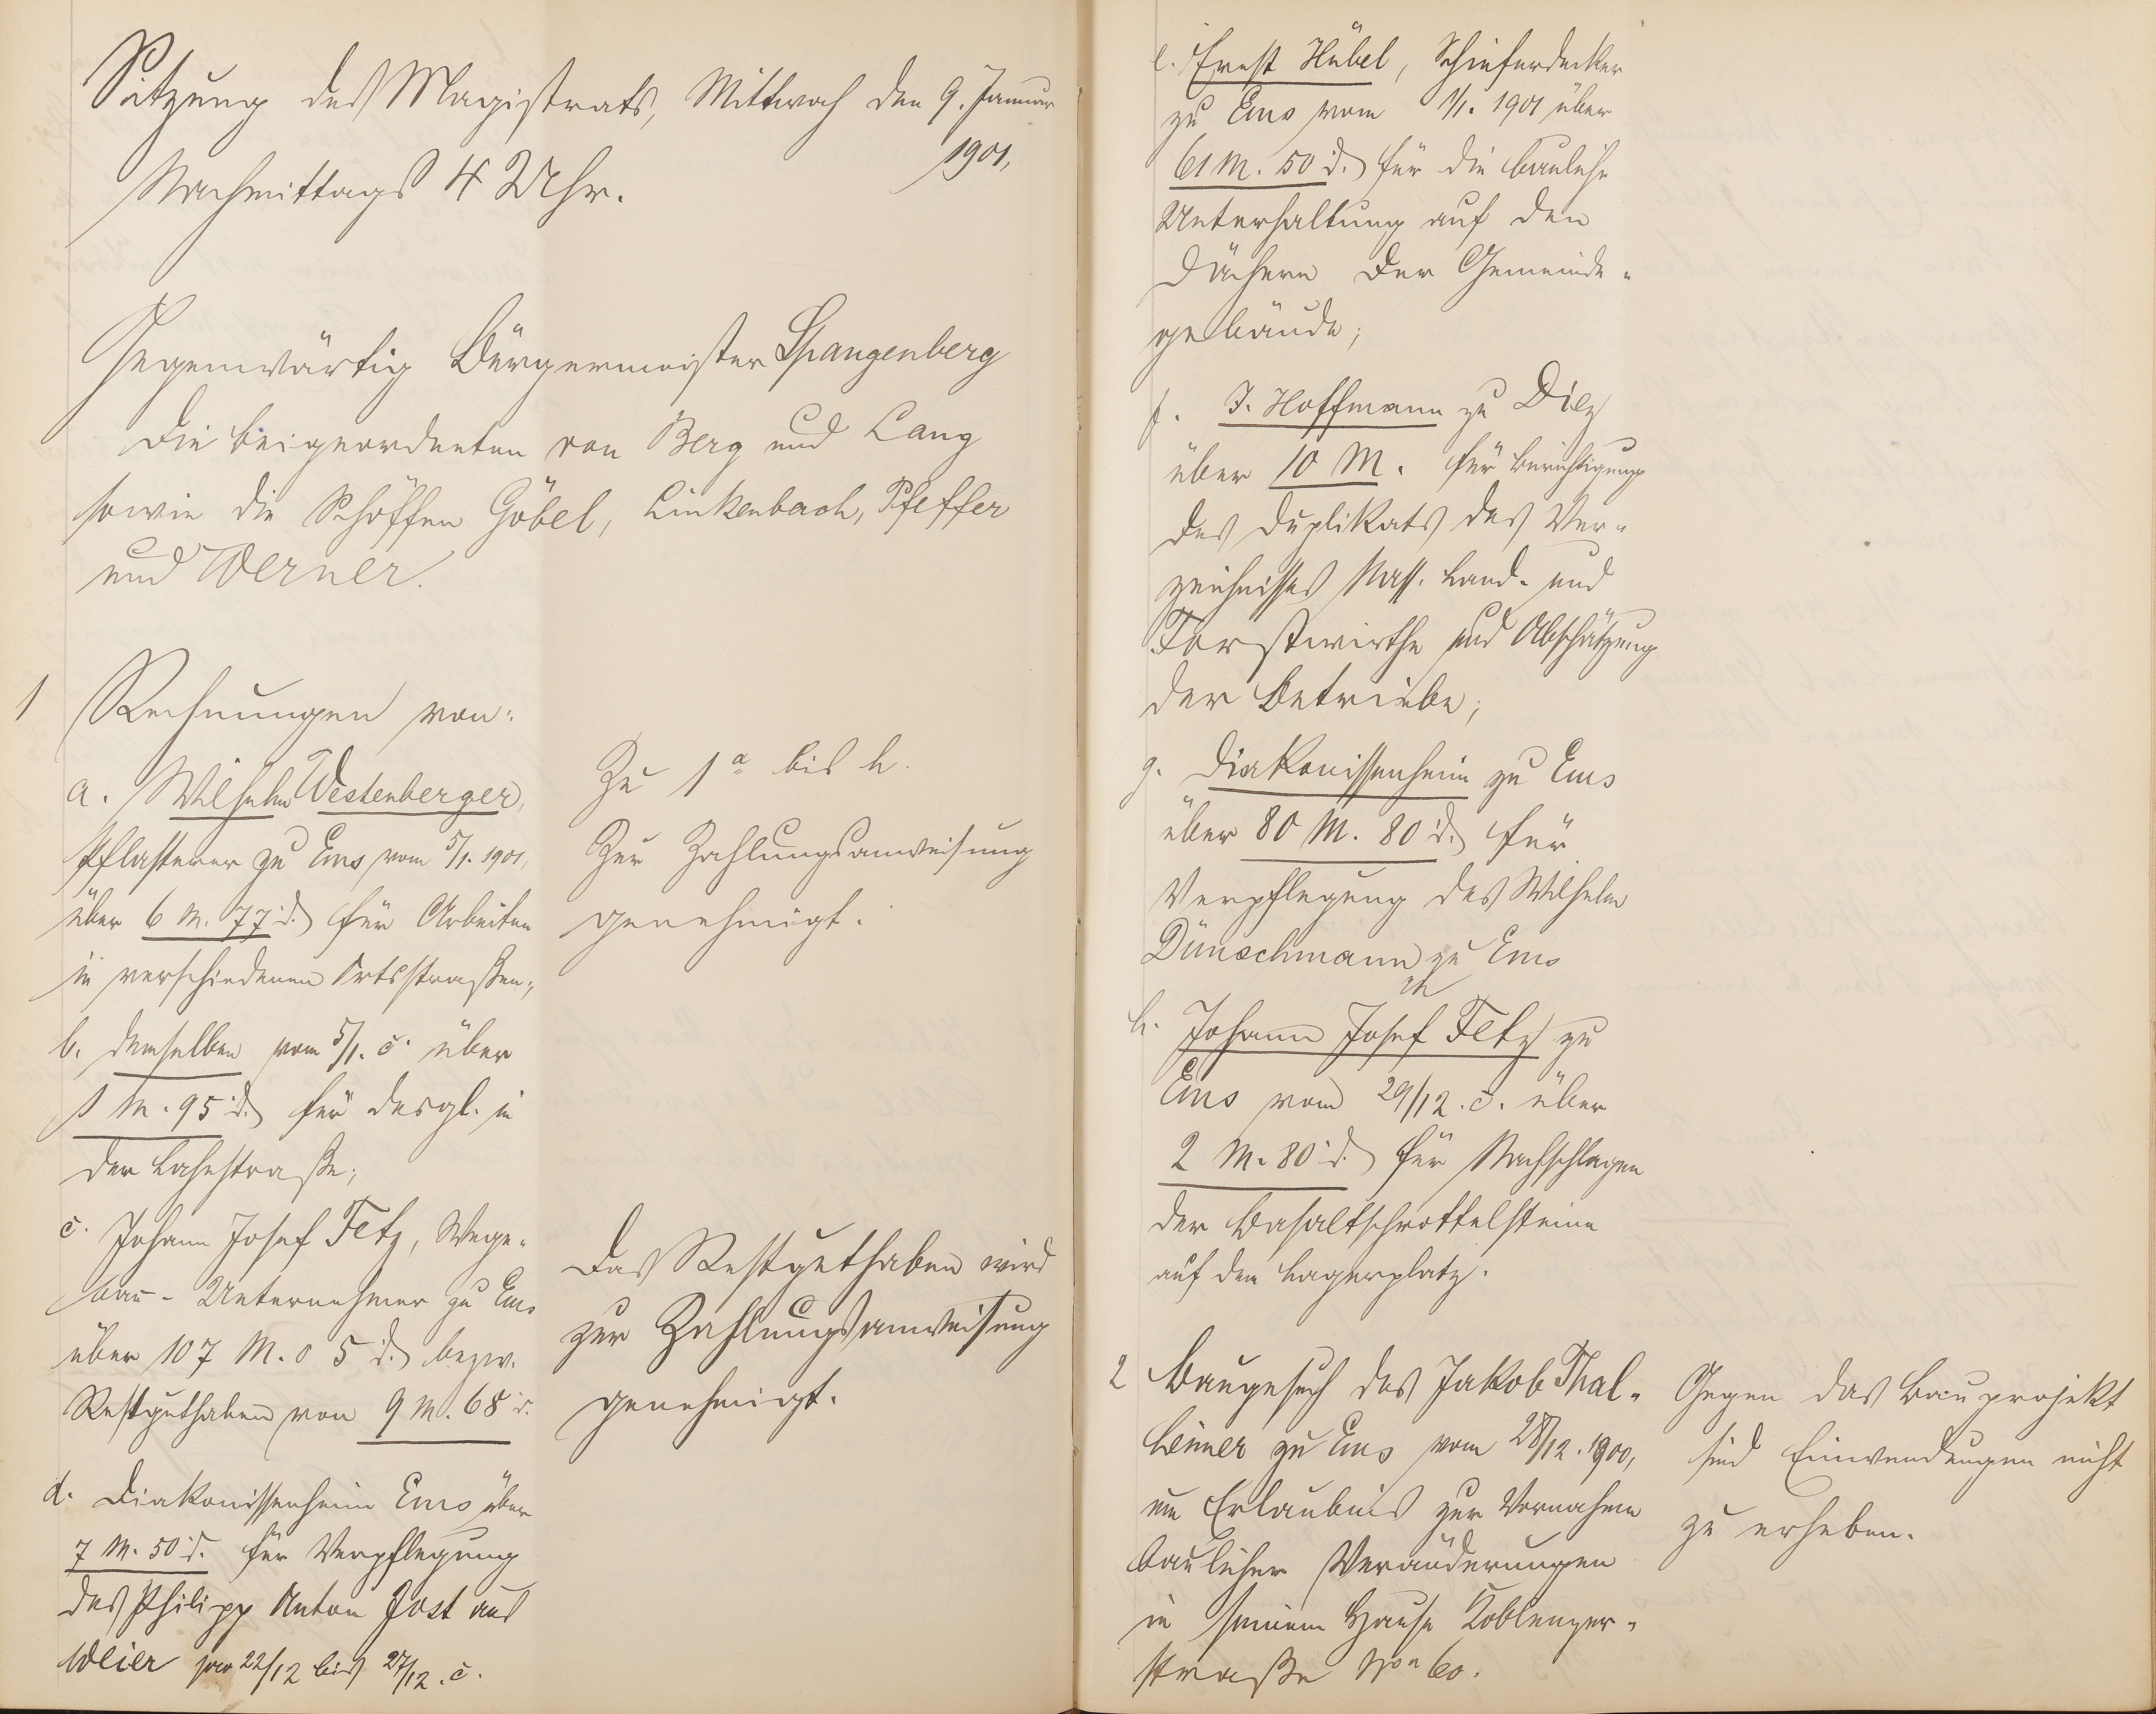 Sitzung des Magistrats, Mittwoch den 9. Januar
1901,
Nachmittags 4 Uhr.
Gegenwärtig Bürgermeister Spangenberg
die Beigeordneten von Berg und Lang
sowie die Schöffen Göbel, Linkenbach, Pfeffer
und Werner.
1 Rechnungen von:
a. Wilhelm Westenberger,
Pflasterer zu Ems vom 5/1. 1901,
über 6 M. 77 d. für Arbeiten
in verschiedenen Ortsstraßen;
b. demselben vom 5/1. c. über
1 M. 95 d. für desgl. in
der Lahnstraße;
c. Johann Josef Fetz, Wege-
bau-Unternehmer zu Ems
über 107 M. 05 d. bezw.
Restguthaben von 9 M. 68 d.
d. Diakonissenheim Ems über
7 M. 50 d. für Verpflegung
des Philipp Anton Jost aus
Weier pro 22/12 bis 27/12. c.
Zu 1a bis h.
Zur Zahlungsanweisung
genehmigt.
Das Restguthaben wird
zur Zahlungsanweisung
genehmigt.
e. Ernst Hübel, Schieferdecker
zu Ems vom 1/1. 1901 über
61 M. 50 d. für die bauliche
Unterhaltung auf den
Dächern der Gemeinde-
gebäude;
f. J. Hoffmann zu Diez
über 10 M. für Berichtigung
des Duplikats des Ver-
zeichnisses Nass. Land- und
Forstwirthe und Abschätzung
der Betriebe;
g. Diakonissenheim zu Ems
über 80 M. 80 d. für
Verpflegung des Wilhelm
Dünschmann zu Ems
h. Johann Josef Fetz zu
Ems vom 29/12. c. über
2 M. 80 d. für Nachschlagen
der Basaltschrottelsteine
auf dem Lagerplatz.
2 Baugesuch des Jakob Thal-
heimer zu Ems vom 28/12. 1900,
um Erlaubnis zur Vornahme
baulicher Veränderungen
in seinem Hause Koblenzer-
straße No 60.
Gegen das Bauprojekt
sind Einwendungen nicht
zu erheben.